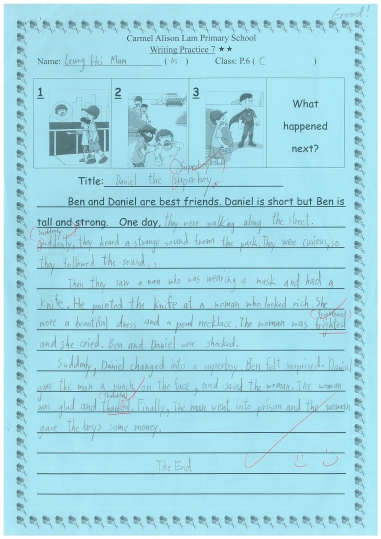 Good!
Carmel Alison Lam Primary School
Writing Practice 7 ★★
Name: Leung Hei Man (15) Class: P.6 (C)
1 2 3 What
happened
next?
Superboy
Title: Daniel the Superboy.
Ben and Daniel are best friends. Daniel is short but Ben is
tall and strong. One day, they were walking along the street.
Suddenly
Suddenly, they heard a strange sound from the park. They were curious, so
they followed the sound.
Then they saw a man who was wearing a mask and had a
knife. He pointed the knife at a woman who looked rich. She
wore a beautiful dress and a pearl necklace. The woman was
and she cried. Ben and Daniel were shoked.
Suddenly, Daniel changed into a superboy. Ben felt surprised. Daniel
gave the man a punch in the face, and saved the woman. The woman
was glad and Finally, the man went into prison and the woman
gave the boys some money.
The End